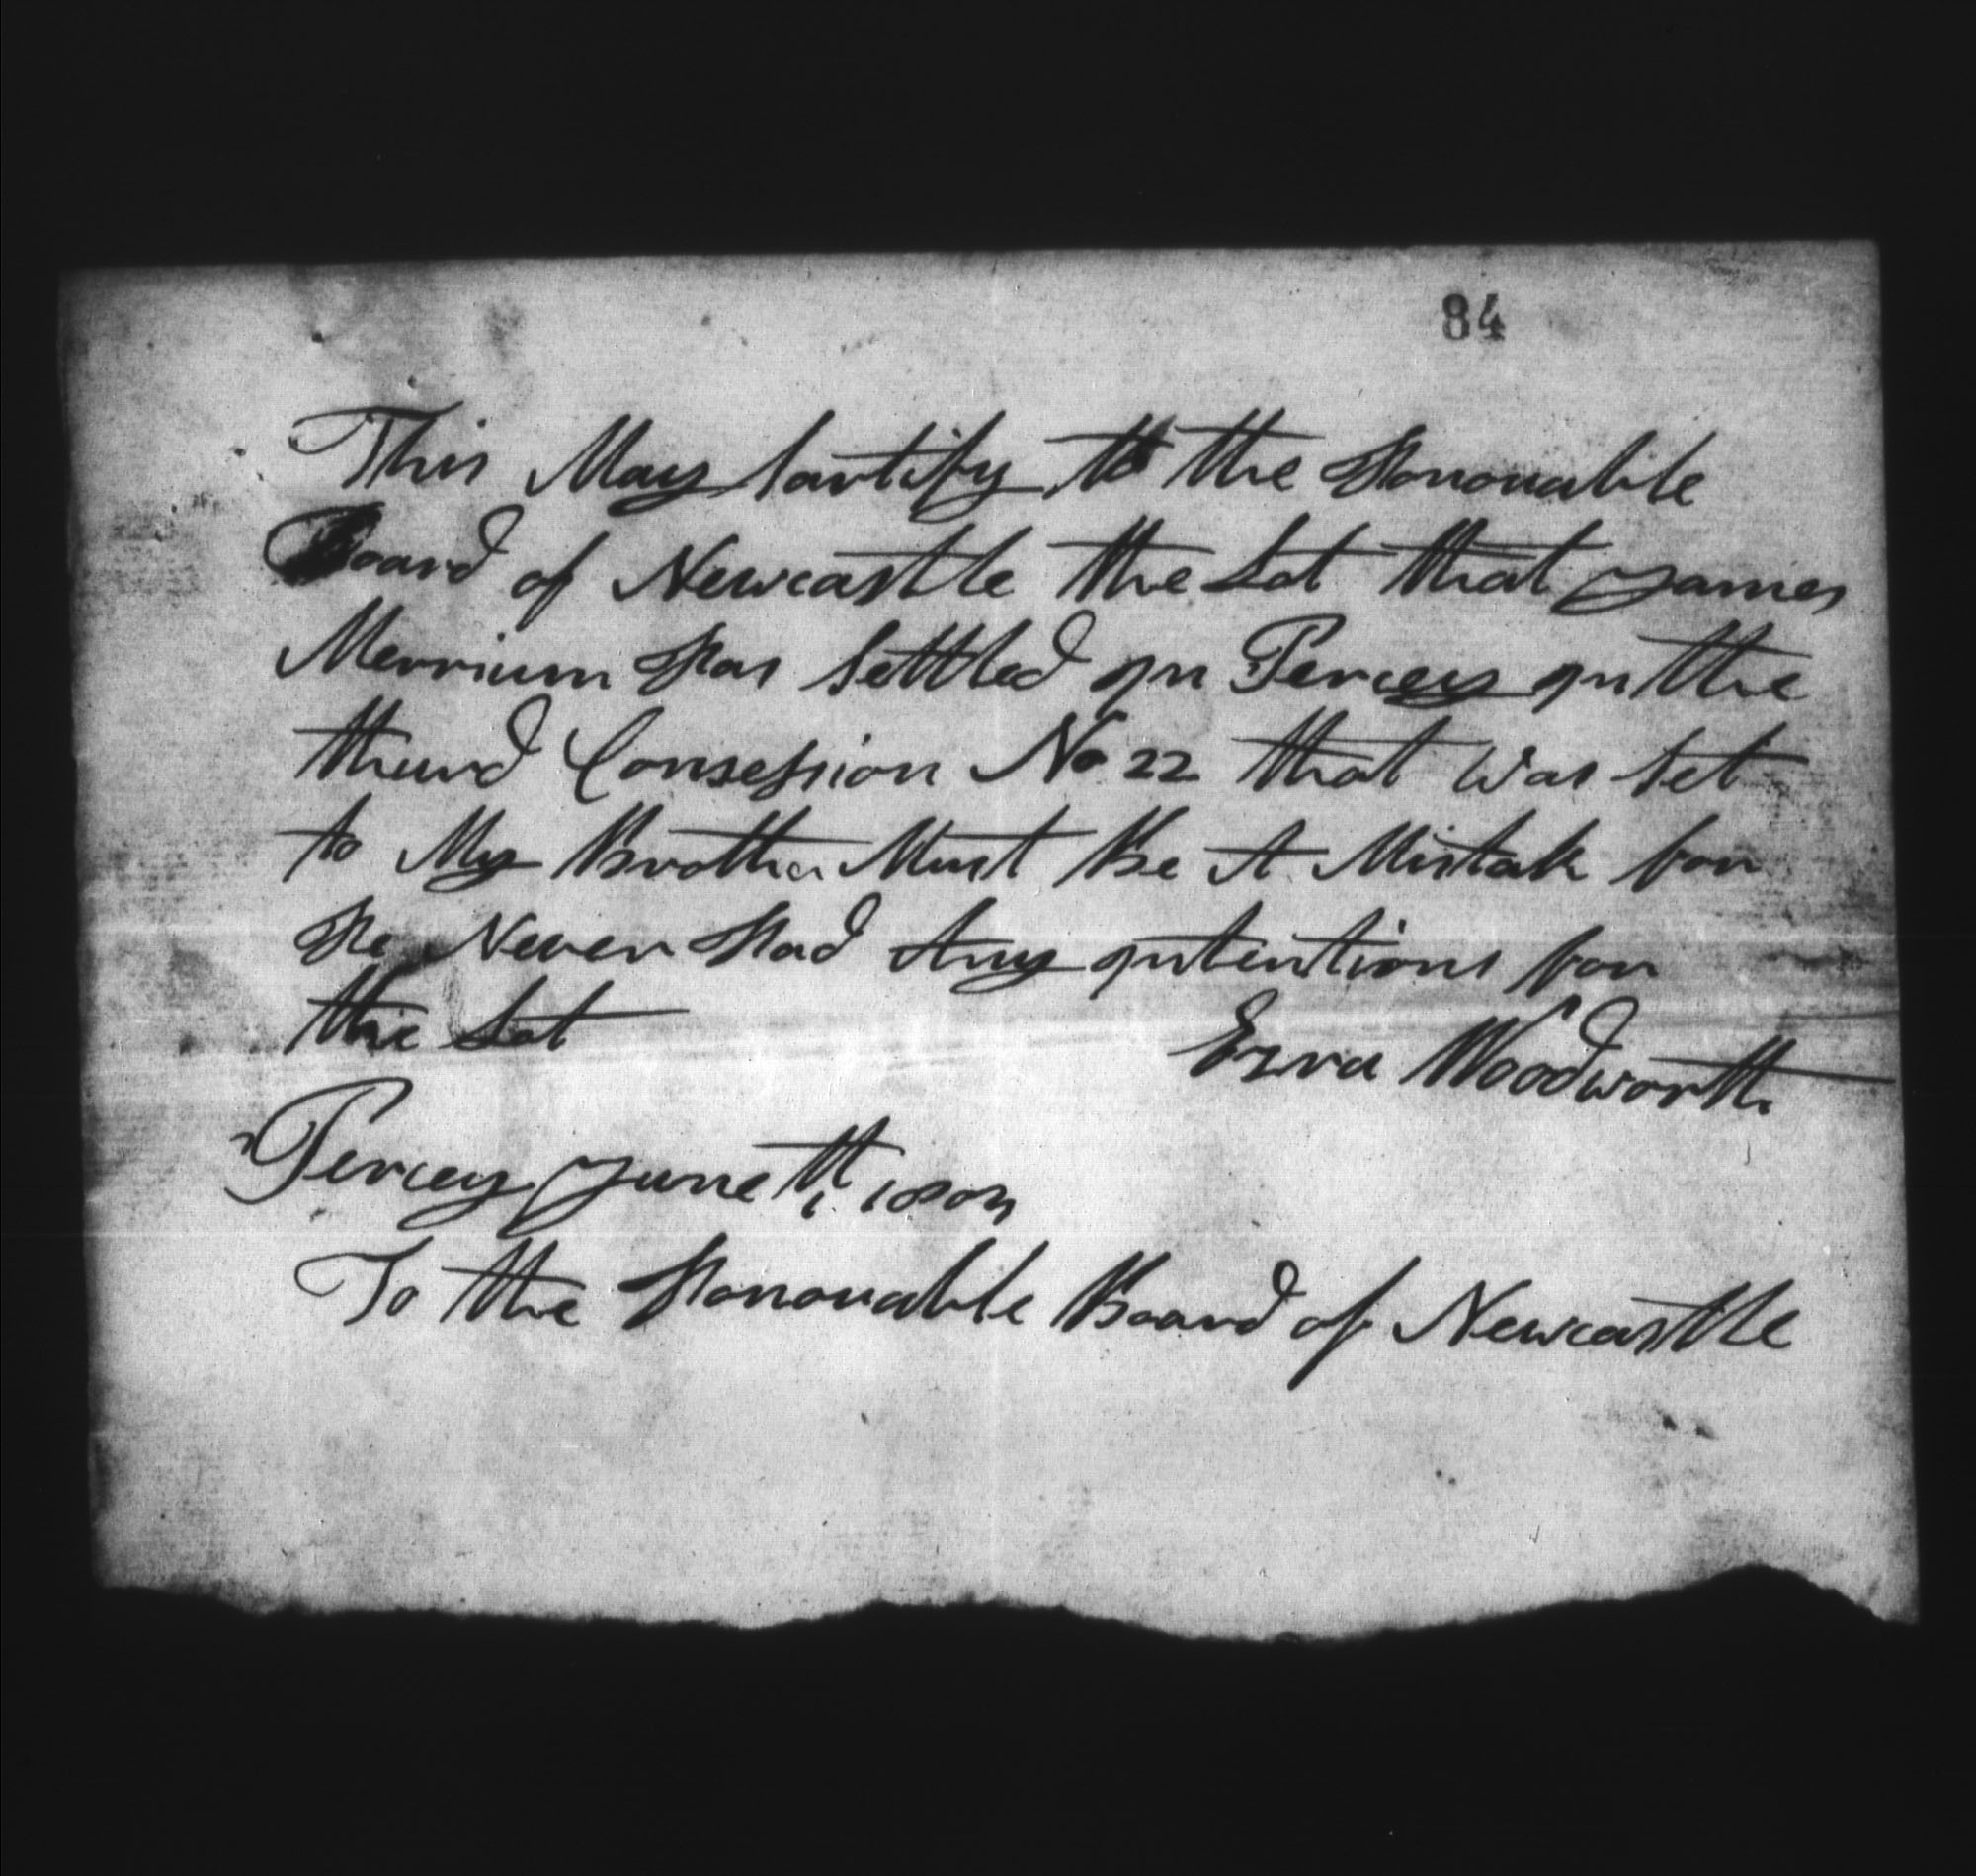 84
This May Sartify to the Honouable
Board of Newcastle the Lot that James
Merrium Has Settled In Percey In the
theurd Consession No 22 that Was Set
to My Brother Must Be A Mistak for
He Never Had Any Intentions for
the Lot
Ezra Woodworth
Percey June th
To the Honouable Board of Newcastle